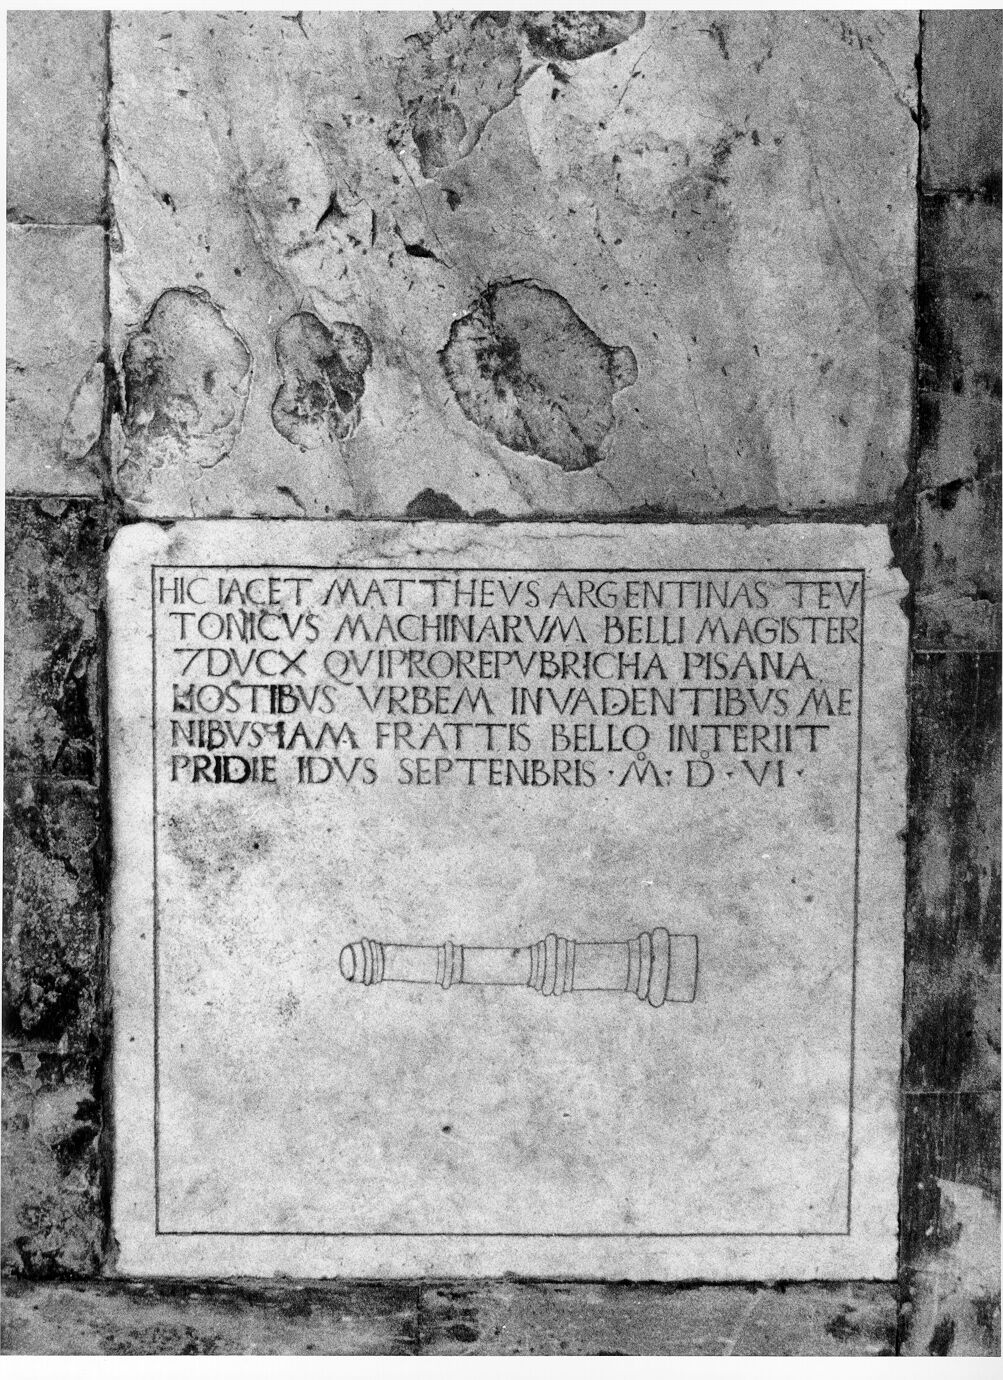 HIC IACET MATTHEVS ARGENTINAS TEV
TONICVS MACHINARVM BELLI MAGISTER
7DVCX QVIPROREPVBRICHA PISANA
HOSTIBVS VRBEM INVADENTIBVS ME
NIBVSQ IAM FRATTIS BELLO INTERIIT
PRIDIE IDVS SEPTENBRIS · M̊ · D̊ · VI ·